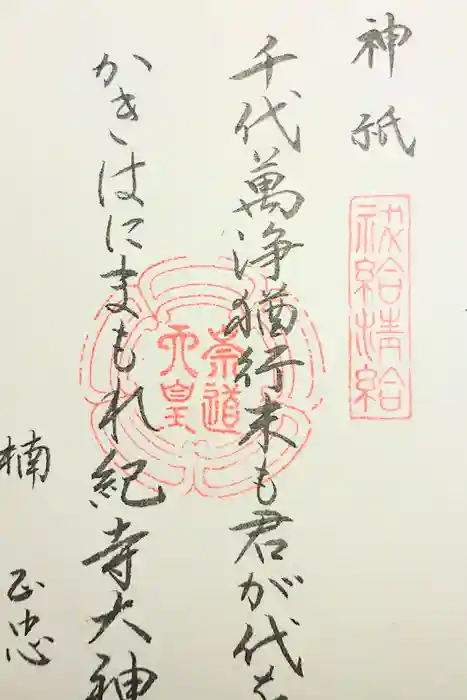 神祇
祓給清給
千代萬浄猶行末も君が代を
かきはにまもれ紀寺大神
崇道
天皇
楠
正忠